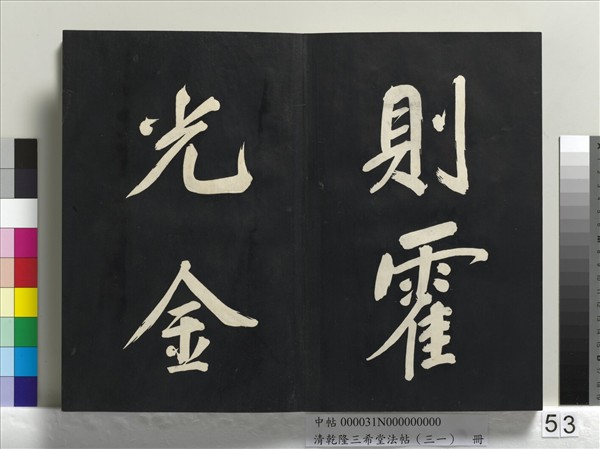 則霍
光金
中帖 000031N000000000
清乾隆三希堂法帖（三一） 冊
53